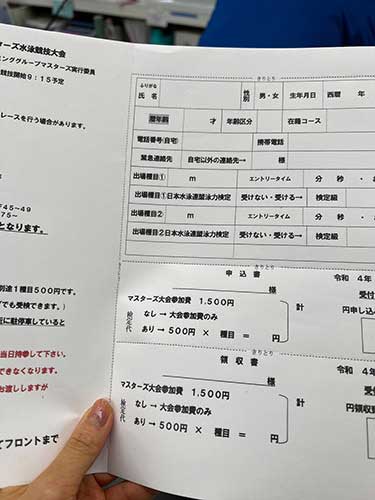 ターズ水泳競技大会
ミンググループマスターズ実行委員
競技開始9:15予定
レースを行う場合があります。
F45~49
75~
となります。
別途1種目500円です。
でも受検できます。)
近に駐停車していると
当日持参して下さい。
できなくなります。
お渡ししますが
てフロントまで
きりとり
ふりがな
氏名
性別
男・女
生年月日
西暦
年
暦年齢
才
年齢区分
在籍コース
電話番号(自宅)
携帯電話
緊急連絡先
自宅以外の連絡先→
様
出場種目①
m
エントリータイム
分
秒
出場種目①日本水泳連盟泳力検定
受けない・受ける→
検定級
出場種目2
m
エントリータイム
分
秒
出場種目2日本水泳連盟泳力検定
受けない・受ける→
検定級
きりとり
申込書
令和 4年
様
受付
マスターズ大会参加費 1,500円
計
円申し込
検定代
なし → 大会参加費のみ
あり → 500円 × 種目 = 円
きりとり
領収書
令和 4年
様
受付
マスターズ大会参加費 1,500円
計
円領収致
検定代
なし → 大会参加費のみ
あり → 500円 × 種目 = 円